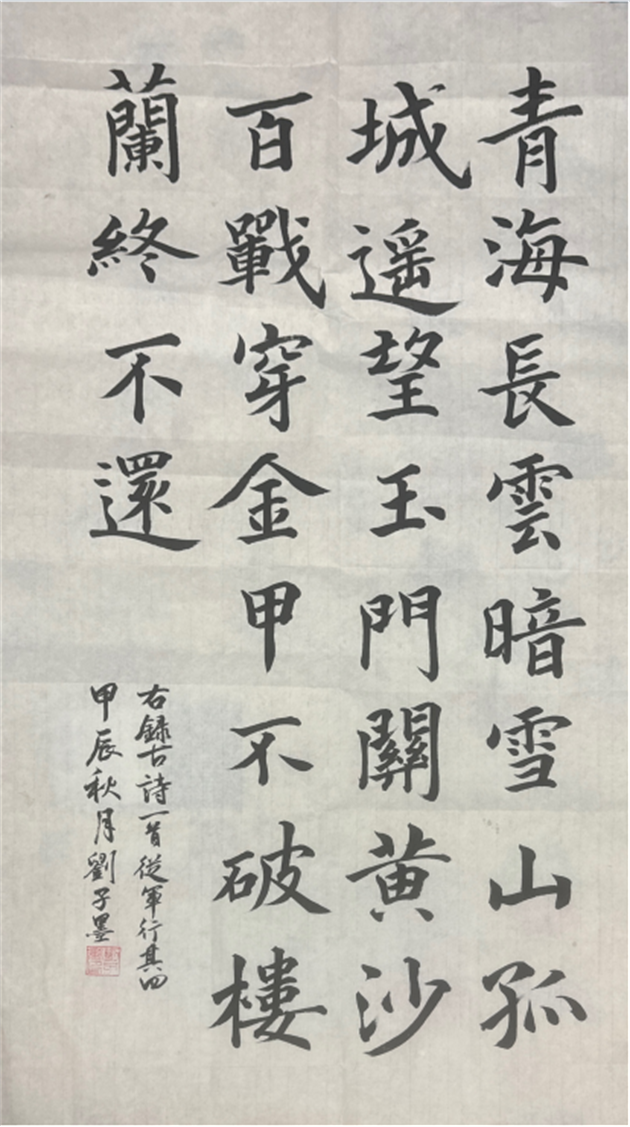 青海長雲暗雪山孤
城遥望玉門關黄沙
百戰穿金甲不破樓
蘭終不還
右録古詩一首從軍行其四
甲辰秋月劉子墨